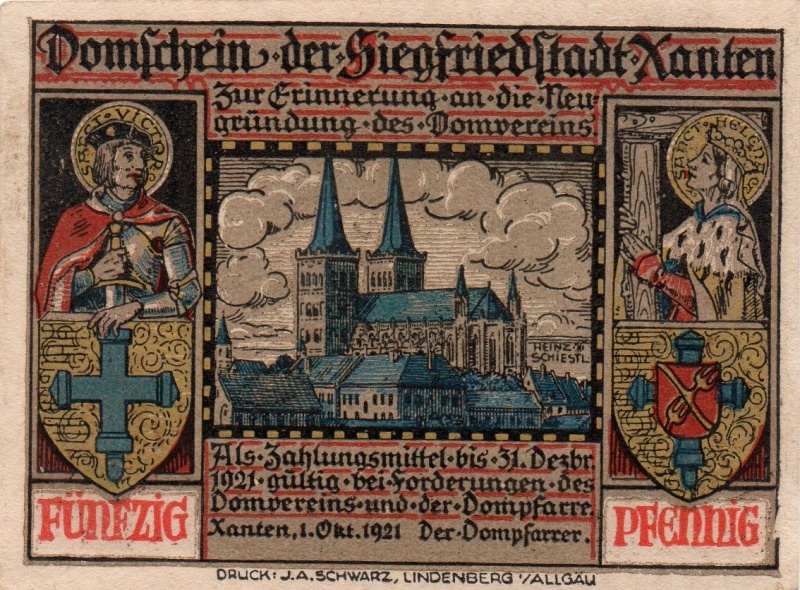 Domschein · der · Siegfriedstadt · Xanten
Zur · Erinnerung · an · die · Neu-
gründung · des · Domvereins
SANCT · VICTOR
SANCT · HELENA
HEINZ
SCHIESTL
Als · Zahlungsmittel · bis · 31. Dezbr.
1921 · gültig · bei · Forderungen · des
Domvereins · und · der · Dompfarre.
Xanten, 1. Okt. 1921 Der · Dompfarrer.
FÜNFZIG
PFENNIG
DRUCK: J.A. SCHWARZ, LINDENBERG i/ALLGÄU